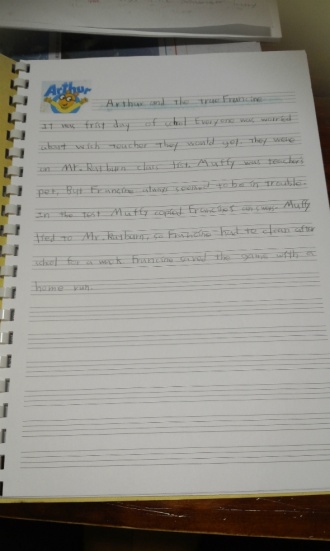 Arthur
Arthur and the true Francine
It was first day of school Everyone was worried
about wich teacher They would get. They were
on Mr. Ratburn class for. Muffy was teachers
pet, But Francine always seemed to be in trouble.
In the test Muffy copied Francine's answer Muffy
lied to Mr. Ratburn, so Francine had to clean after
shool for a week Francine saved the game with a
home run.